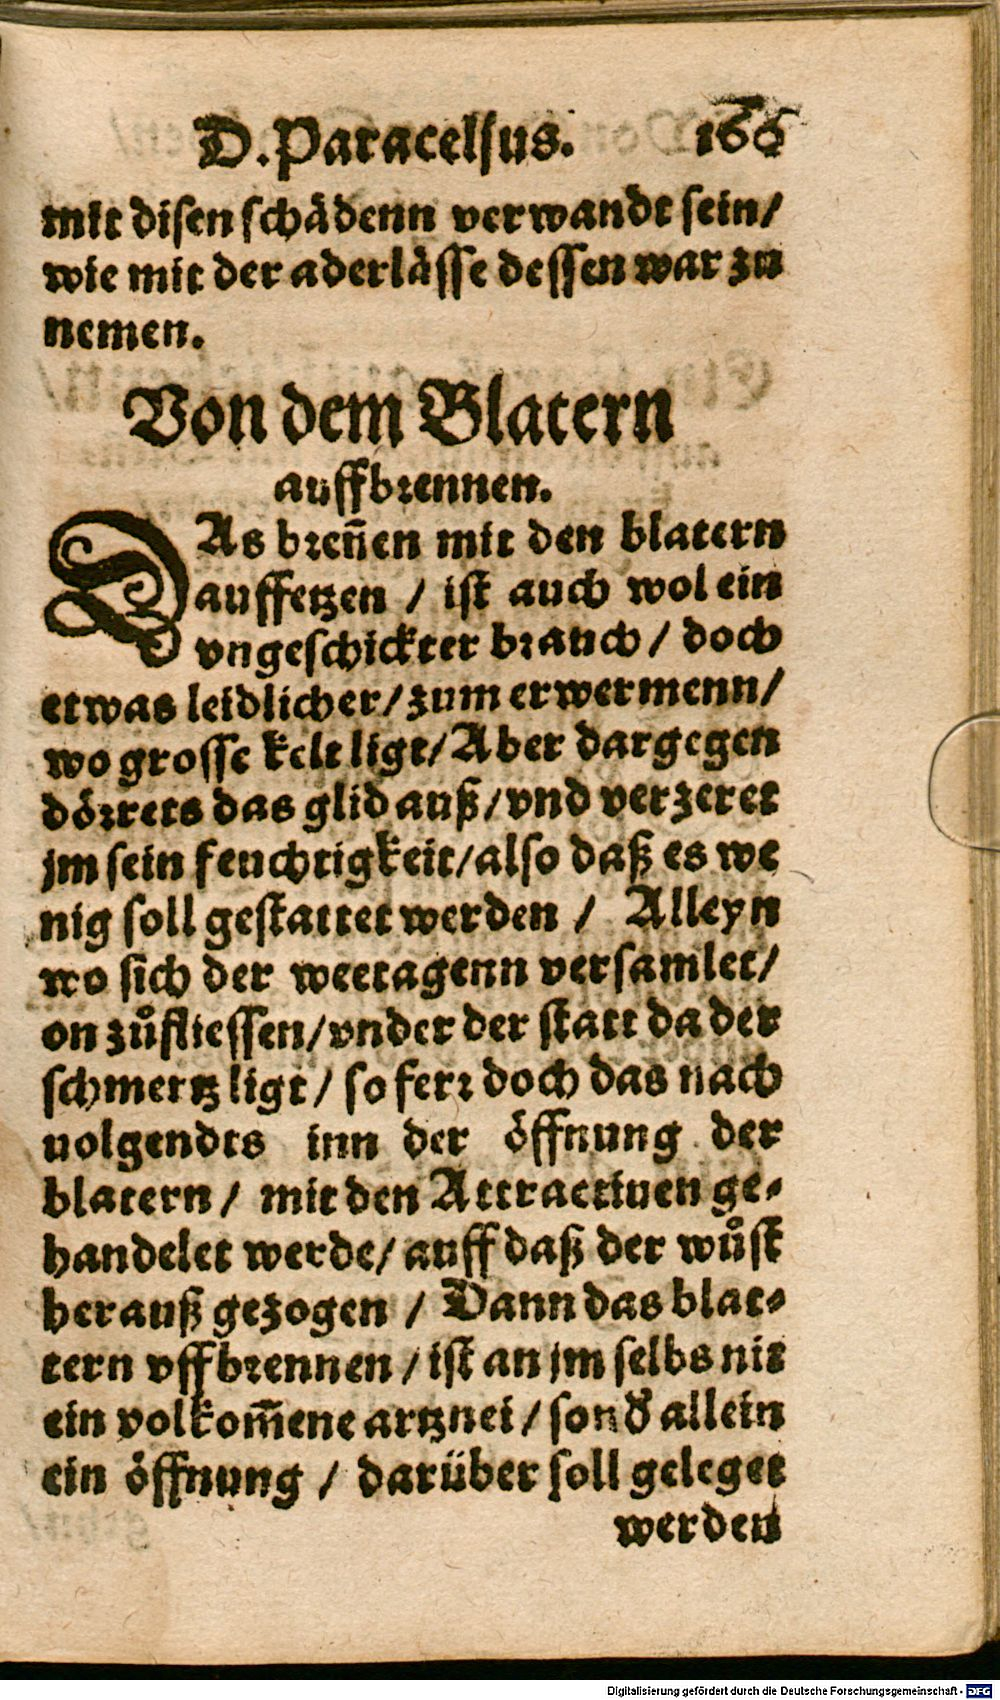 D. Paracelsus. 166
mit disen schädenn verwandt sein/
wie mit der aderlässe dessen war zu
nemen.
Von dem Blatern
auffbrennen.
DAs breñen mit den blatern
auffetzen / ist auch wol ein
vngeschickter brauch / doch
etwas leidlicher / zum erwermenn /
wo grosse kelt ligt / Aber dargegen
dörrets das glid auß / vnd verzeret
jm sein feuchtigkeit / also daß es we
nig soll gestattet werden / Alleyn
wo sich der weetagenn versamlet /
on zůfliessen / vnder der statt da der
schmertz ligt / so ferr doch das nach
uolgendts inn der öffnung der
blatern / mit den Attractiuen ge-
handelet werde / auff daß der wůst
herauß gezogen / Dann das blat-
tern vffbrennen / ist an jm selbs nit
ein volkom̃ene artznei / sond̕ allein
ein öffnung / darüber soll geleget
werden
Digitalisierung gefördert durch die Deutsche Forschungsgemeinschaft - DFG